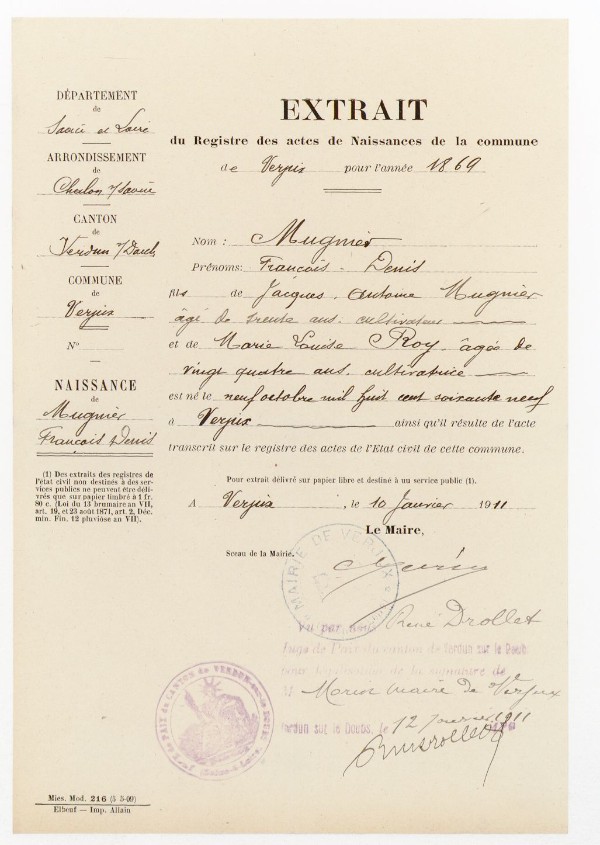 DÉPARTEMENT
de
Saône et Loire
ARRONDISSEMENT
de
Chalon s/Saône
CANTON
de
Verdun s/Doubs
COMMUNE
de
Verjux
No
NAISSANCE
de
Mugnier
François Denis
(1) Des extraits des registres de
l'état civil non destinés à des ser-
vices publics ne peuvent être déli-
vrés que sur papier timbré à 1 fr.
80 c. (Loi du 13 brumaire an VII,
art. 19, et 23 août 1871, art. 2, Déc.
min. Fin. 12 pluviose an VII).
EXTRAIT
du Registre des actes de Naissances de la commune
de Verjux pour l'année 1869
Nom : Mugnier
Prénoms: François Denis
fils de Jacques Antoine Mugnier
âgé de trente ans. cultivateur
et de Marie Louise Roy âgée de
vingt quatre ans. cultivatrice
est né le neuf octobre mil huit cent soixante neuf
à Verjux ainsi qu'il résulte de l'acte
transcrit sur le registre des actes de l'Etat civil de cette commune.
Pour extrait délivré sur papier libre et destiné à un service public (1).
A Verjux, le 10 Janvier 1911
Le Maire,
Sceau de la Mairie.
MAIRIE DE VERJUX
Vu par nous René Drollet
Juge de Paix du canton de Verdun sur le Doubs
pour légalisation de la signature de
M maire de Verjux
Verdun sur le Doubs, le 12 Janvier 1911
de PAIX du CANTON de VERDUN-sur-le-DOUBS
(Saône-&-Loire)
Mies. Mod. 216 (5 5-09)
Elbeuf — Imp. Allain